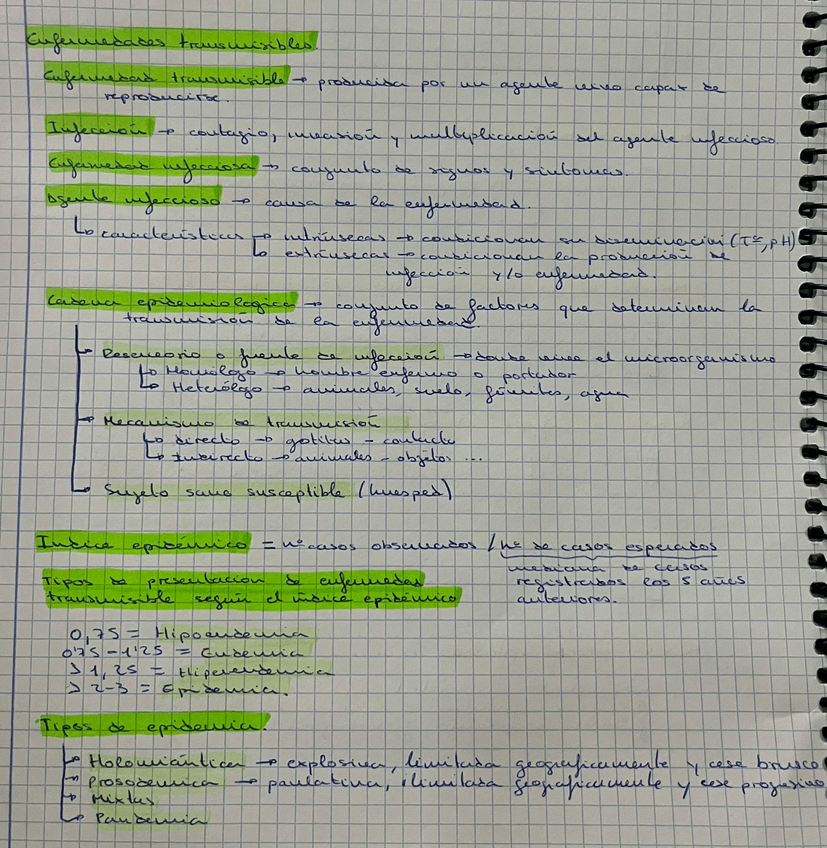 Enfermedades transmisibles.
Enfermedad transmisible → producida por un agente vivo capaz de
reproducirse.
Infección → contagio, invasión y multiplicación del agente infeccioso.
Enfermedad infecciosa → conjunto de signos y síntomas.
Agente infeccioso → causa de la enfermedad.
↳ características → intrínsecas → condicionan su diseminación (Tª, pH)
↳ extrínsecas → condicionan la producción de
infección y/o enfermedad.
Cadena epidemiologica → conjunto de factores que determinan la
transmisión de la enfermedad.
→ Reservorio o fuente de infección → donde vive el microorganismo
↳ Homólogo → hombre enfermo o portador
↳ Heterólogo → animales, suelo, fómites, agua
→ Mecanismo de transmisión
↳ directo → gotitas - contacto
↳ Indirecto → animales - objetos ...
→ Sujeto sano susceptible (huesped)
Indice epidémico = nº casos observados / nº de casos esperados
mediana de casos
registrados los 5 años
anteriores.
Tipos de presentacion de enfermedad
transmisible según el índice epidémico
0,75 = Hipoendemia
0'75 - 1'25 = Endemia
> 1,25 = Hiperendemia
> 2-3 = Epidemia.
Tipos de epidemia.
→ Holomiántica → explosiva, limitada geograficamente y cese brusco
→ Prosodemica → paulatina, ilimitada geograficamente y cese progresivo
→ Mixtas
→ Pandemia